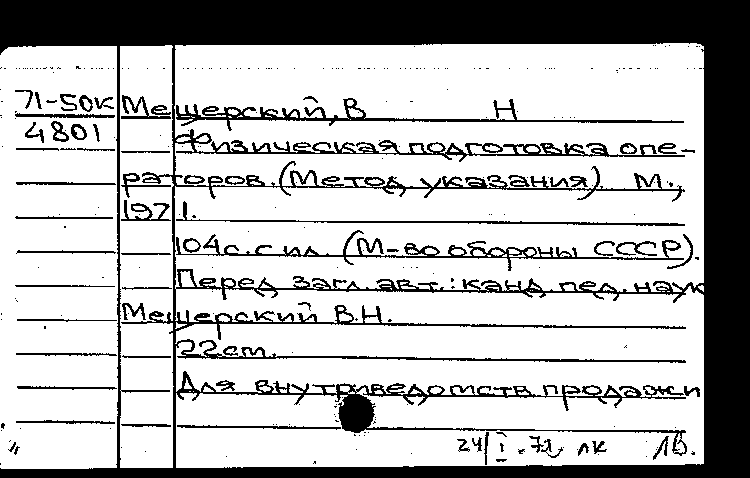 71-50к Мещерский, В Н
4801 Физическая подготовка опе-
раторов. (Метод. указания). М.,
1971.
104с. с ил. (М-во обороны СССР).
Перед загл. авт.: канд. пед. наук
Мещерский В.Н.
22cm.
Для внутриведомств продажи
24/I.72 лк 1в.